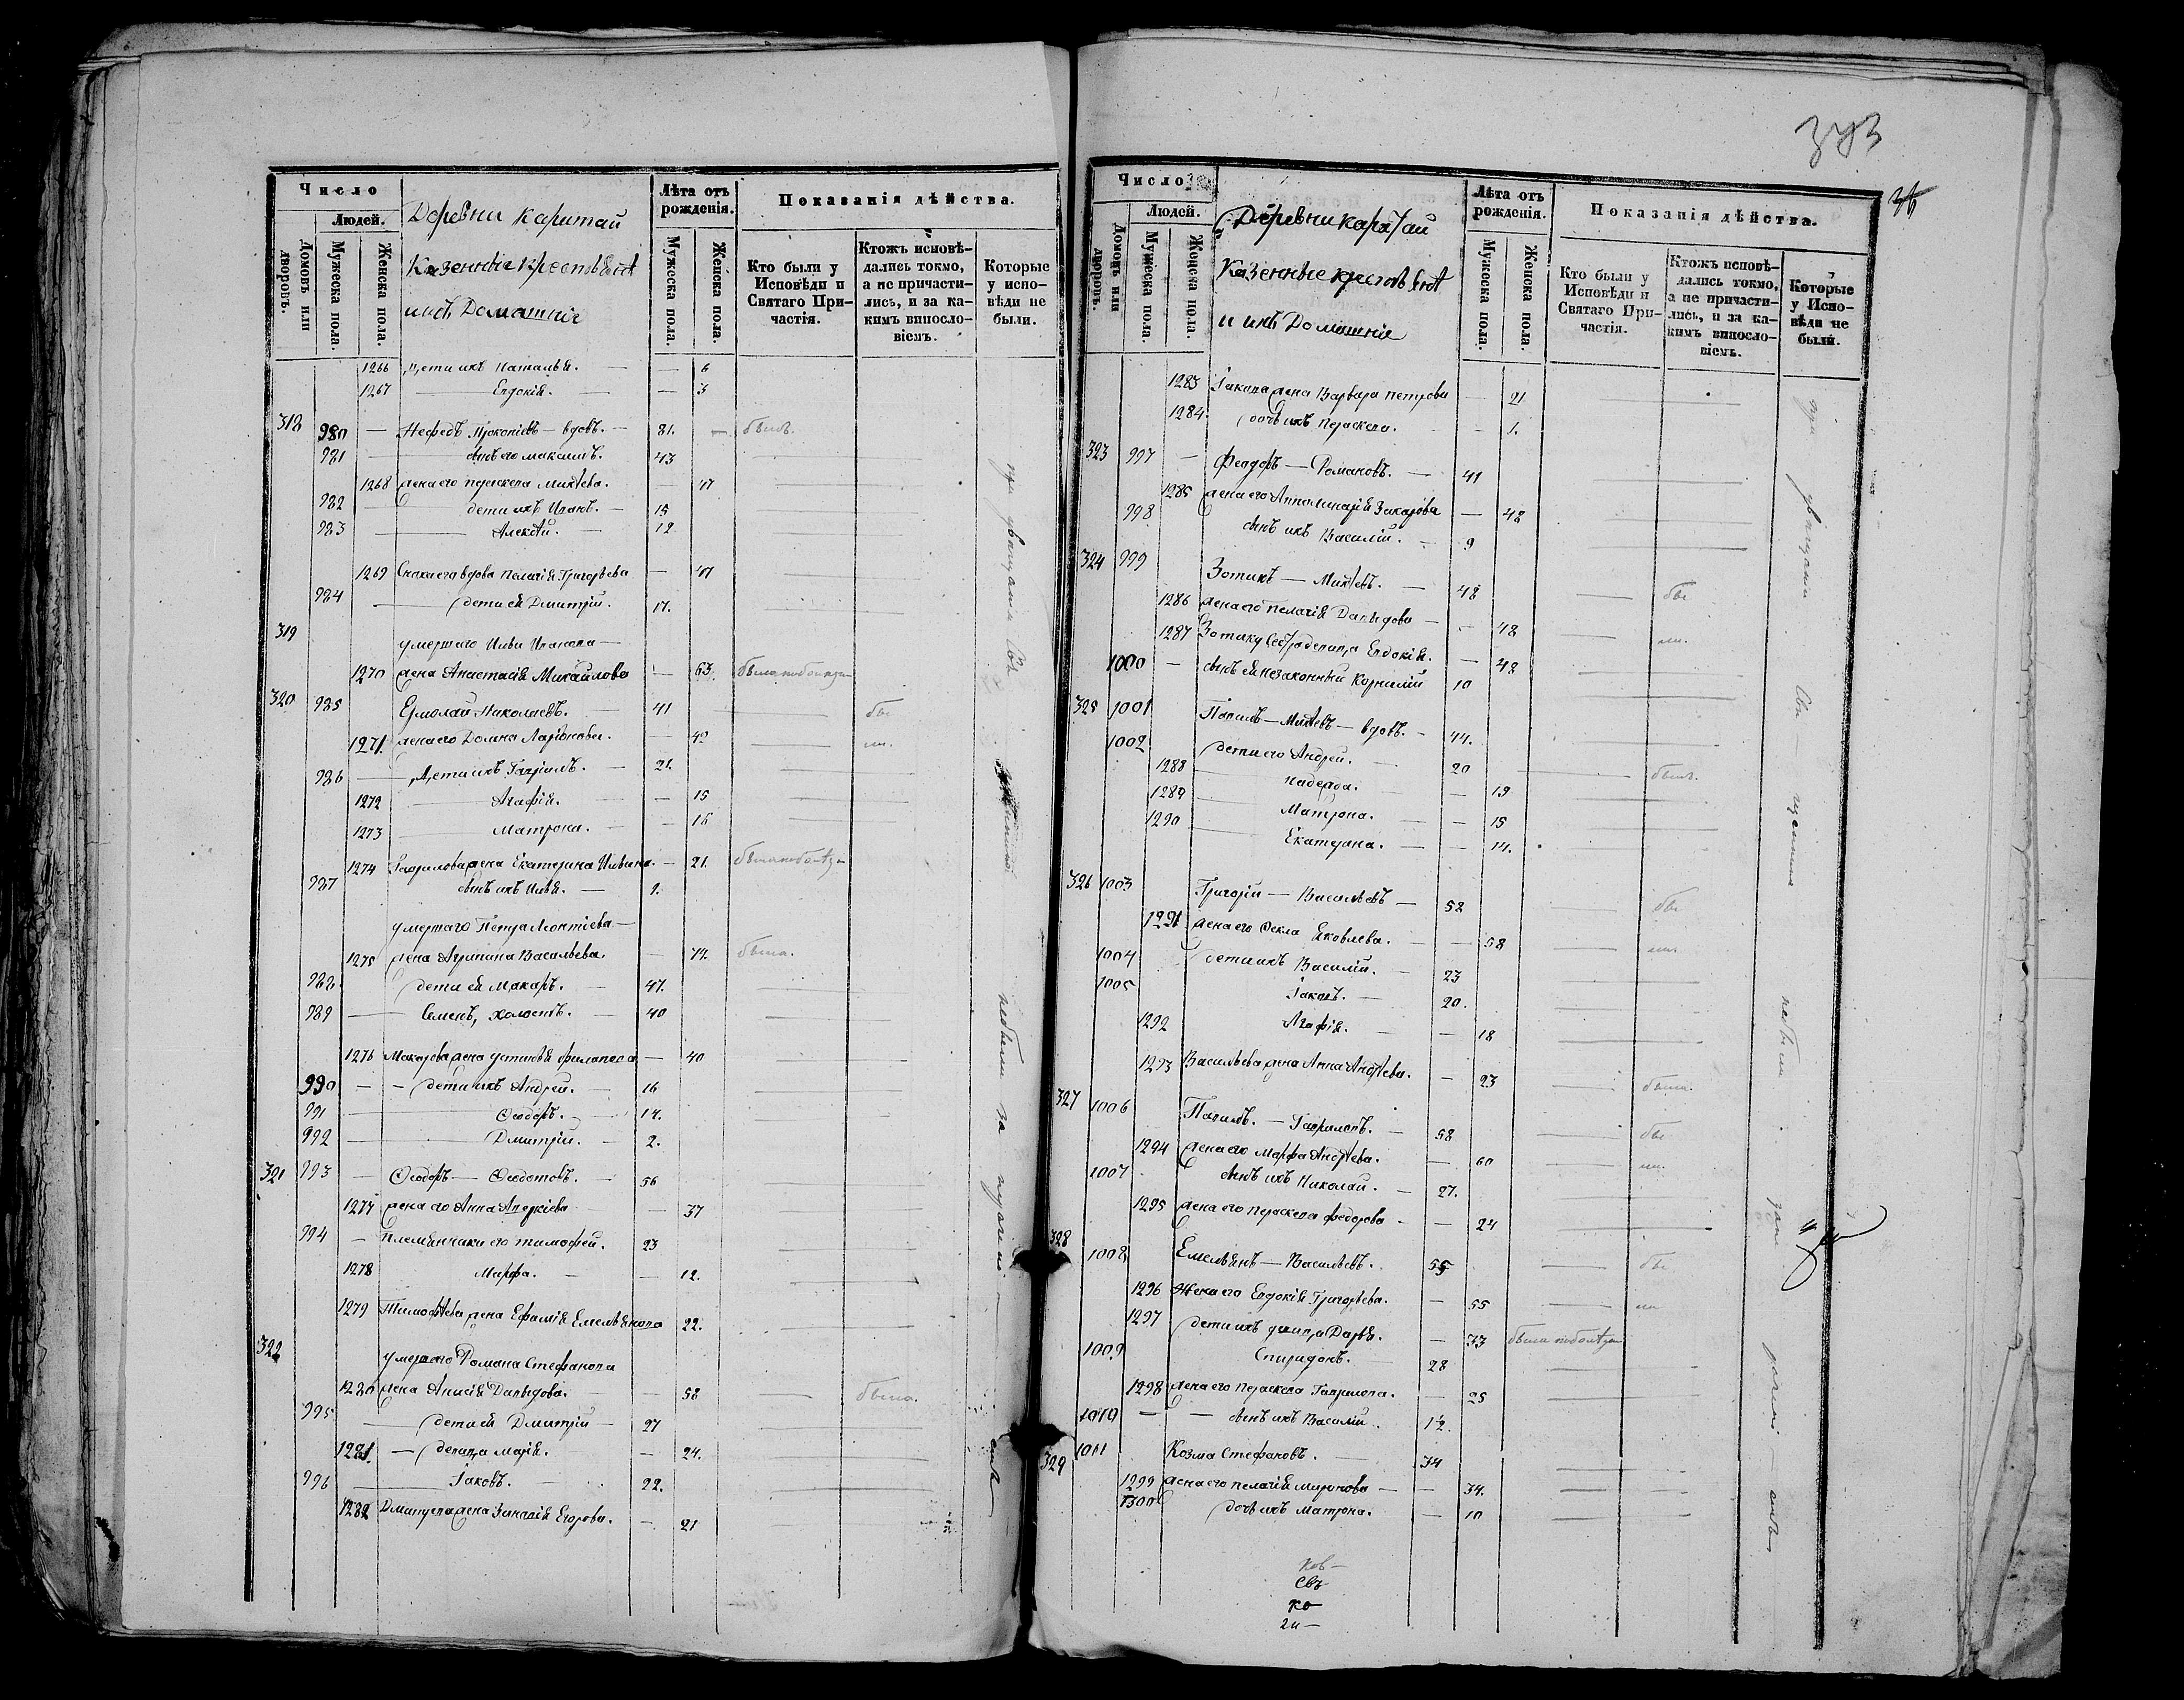 Число
Людей.
Домовъ или дворовъ.
Мужеска пола.
Женска пола.
Деревни Каратай
Казенные крестьяне
и ихъ Домашніе
Лѣта отъ рожденія.
Мужеска пола.
Женска пола.
Показанія дѣйства.
Кто были у Исповѣди и Святаго Причастія.
Ктожъ исповѣдались токмо, а не причастились, и за какимъ винословіемъ.
Которые у исповѣди не были.
1266 Дети ихъ Наталья. — — 6
1267 — Евдокія. — — 3
318 980 — Нефедъ Прокопіевъ — вдовъ. — 81. — былъ.
981 — сынъ его Максимъ. 43
1268 жена его Параскева Михѣева. — 47
982 — дети ихъ Иванъ. — 15
983 — Алексѣй. — 12
1269 Сноха его вдова Пелагія Григорьева — 47
984 — дети ей Дмитрій. 17.
319 умершаго Ильи Иванова —
1270 жена Анастасія Михайлова — 63.
320 985 Ермолай Николаевъ. — 41 — бы
1271. жена его Домна Ларіонова. — 42 — ли.
986 — Дети ихъ Гаврилъ. — 21.
1272 — Агафія. — 15
1273 — Матрона. — — 16
1274 Гаврилова жена Екатерина Ильина. — 21.
987 сынъ ихъ Илья. — 2.
умершаго Петра Леонтіева —
1275 жена Агрипина Васильева. — 74. была.
988. дети ей Макаръ. — 47.
989 — Семенъ, холостъ. — 40
1276 Макарова жена Устинья Филипова — 40
990 — — дети ихъ Андрей. — 16
991 — Ѳеодоръ. — 14.
992 — Дмитрій. — 2.
321 993 — Ѳеодоръ — Ѳедотовъ. — 56
1277 жена его Анна Аверкіева — 37
994 — племянники его Тимофей. 23
1278 Марфа. — — 12.
1279 Тимофѣева жена Ефимія Емельянова 22.
322 умершаго Романа Стефанова
1280 жена Анисія Давыдова. — — 58 — была.
995 — дети ей Дмитрій — 27
1281. — девица Марія. — 24.
996 — Іаковъ. — 22.
1282 Дмитріева жена Зиновія Егорова. — 21
383
Число
Людей.
Домовъ или дворовъ.
Мужеска пола.
Женска пола.
Деревни Каратай
Казенные крестьяне
и ихъ Домашніе
Лѣта отъ рожденія.
Мужеска пола.
Женска пола.
Показанія дѣйства.
Кто были у Исповѣди и Святаго Причастія.
Ктожъ исповѣдались токмо, а не причастились, и за какимъ винословіемъ.
Которые у Исповѣди не были.
1283 Іакова жена Варвара Петрова — 21
1284. дочь ихъ Параскева. — 1.
323 997 — Феодоръ — Романовъ. — 41
1285 жена его Апполинарія Захарова — 42
998 сынъ ихъ Василій. — 9
324 999 Зотикъ — Михѣевъ. — 48 — бы
1286 жена его Пелагія Давыдова — — 48 — ли.
1287 Зотику сестра девица Евдокія. — 48
1000 — сынъ ей незаконный Корнилій 10
325 1001 Павилъ — Михѣевъ — вдовъ. — 44.
1002 дети его Андрей. — 20 — былъ.
1288 — Надежда. — 19
1289 — Матрона. — — 15
1290 — Екатерина. — — 14.
326 1003 Григорій — Васильевъ — 52 — бы
1291 жена его Ѳекла Яковлева. — — 58 — ли.
1004 дети ихъ Василій. — 23
1005 Іаковъ. — 20.
1292 Агафія. — — 18
1293 Васильева жена Анна Андрѣева. — 23 — была.
327 1006 Павилъ. — Гавриловъ. — 58 — бы
1294 жена его Марфа Андрѣева. — 60 — ли.
1007 сынъ ихъ Николай. — 27.
1295 жена его Параскева Федорова — — 24
328 1008 Емельянъ — Васильевъ. 55 — бы
1296 Жена его Евдокія Григорьева. — 55 — ли
1297 дети ихъ девица Дарья. — 33
1009 Спиридонъ. — 28
1298 жена его Параскева Гаврилова. — 25
1010 — — сынъ ихъ Василій. 1½.
329 1011 Козма Стефановъ. — 34
1299 жена его Пелагія Миронова — — 34.
1300 дочь ихъ Матрона. — 10